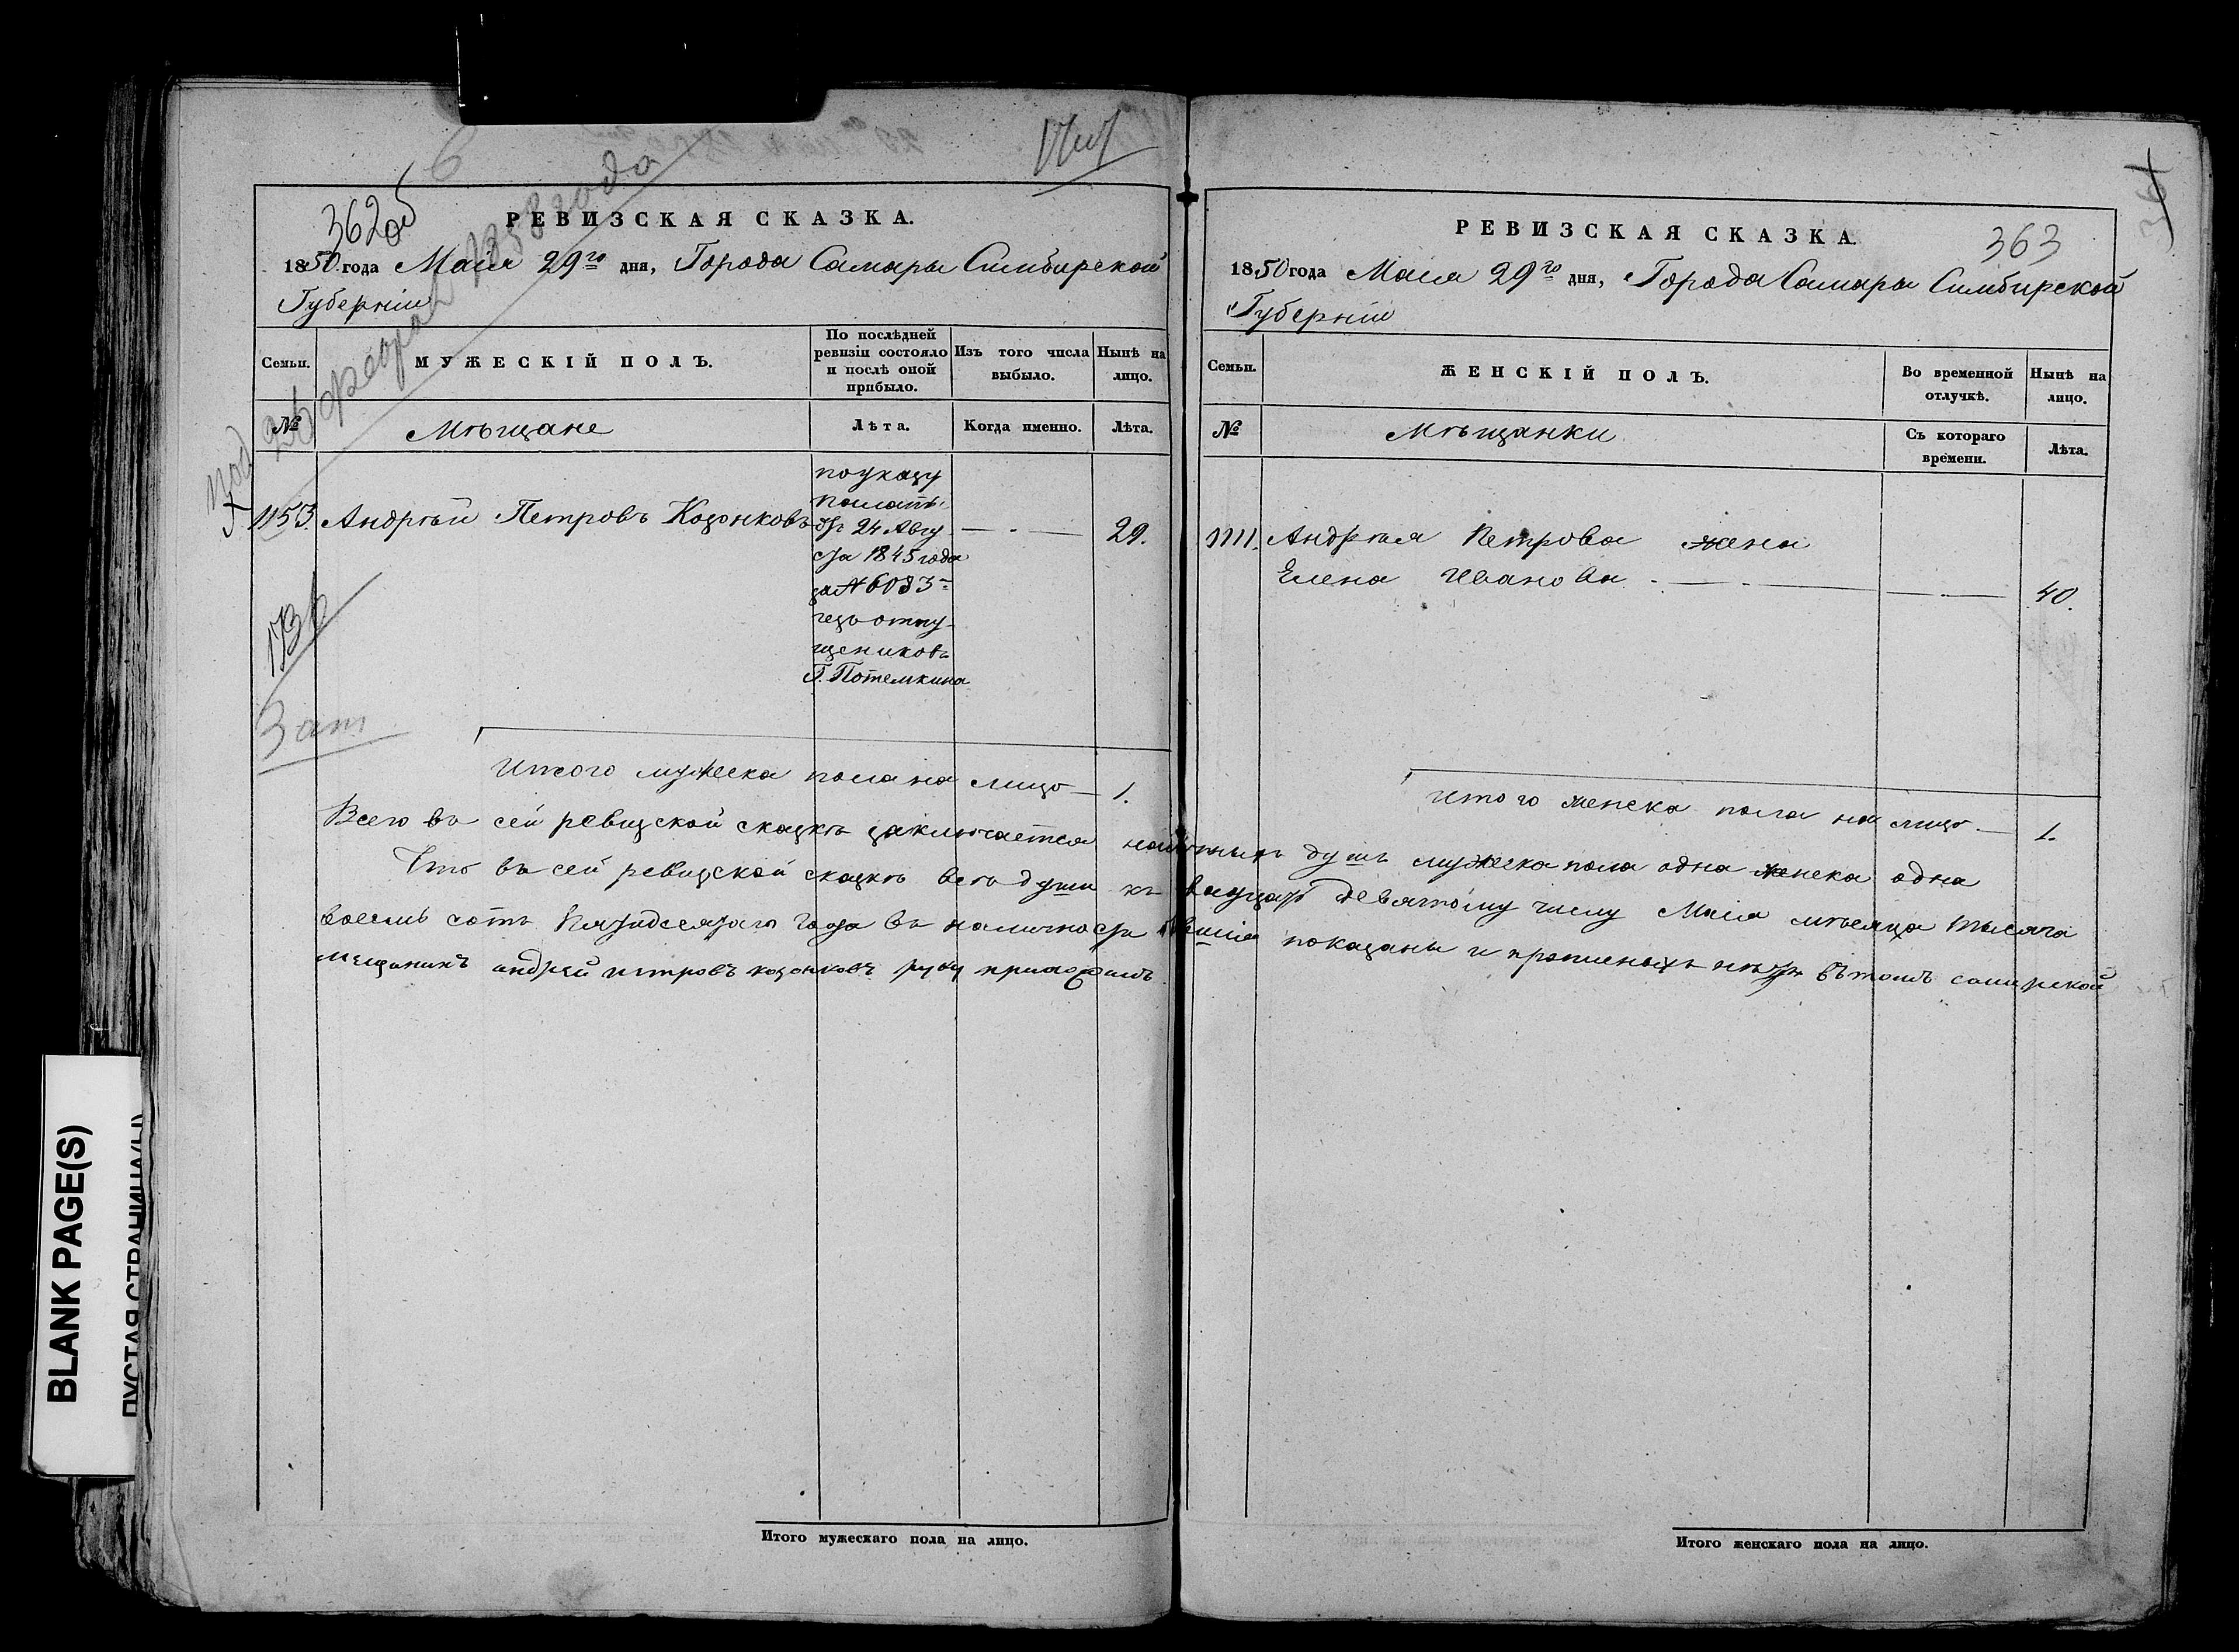 362 об
РЕВИЗСКАЯ СКАЗКА.
1850 года Маія 29го дня, Города Самары Симбирской
Губерніи
Семьи.
МУЖЕСКІЙ ПОЛЪ.
По послѣдней
ревизіи состояло
и послѣ оной
прибыло.
Изъ того числа
выбыло.
Нынѣ на
лицо.
№
Мѣщане
Лѣта.
Когда именно.
Лѣта.
1153.
Андрѣй Петровъ Козонковъ
по указу
Палаты
отъ 24 Авгу
ста 1845 года
за №
изъ отпу-
щениковъ
Г. Потемкина
29.
173
Зат
Итого мужеска пола на лицо 1.
363
РЕВИЗСКАЯ СКАЗКА.
1850 года Маія 29го дня, Города Самары Симбирской
Губерніи
Семьи.
ЖЕНСКІЙ ПОЛЪ.
Во временной
отлучкѣ.
Нынѣ на
лицо.
№
Мѣщанки
Съ котораго
времени.
Лѣта.
1111.
Андрѣя Петрова жена
Елена Иванова
40.
Итого женска пола на лицо 1.
Всего въ сей ревизской сказкѣ заключается наличныхъ душъ мужеска пола одна женска одна
Что въ сей ревизской сказкѣ всѣ души къ двадцать девятому числу Маія мѣсяца тысяча
восемь сотъ пятидесятаго года въ наличности показаны и прописныхъ нѣтъ въ томъ самарской
мещанинъ андрей петровъ козонковъ руку приложилъ
Итого мужескаго пола на лицо.
Итого женскаго пола на лицо.
BLANK PAGE(S)